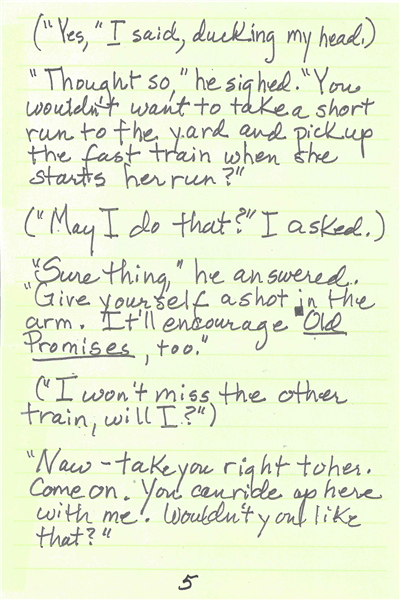 ("Yes," I said, ducking my head.)
"Thought so," he sighed. "You
wouldn't want to take a short
run to the yard and pick up
the fast train when she
starts her run?"
("May I do that?" I asked.)
"Sure thing," he answered.
"Give yourself a shot in the
arm. It'll encourage Old
Promises, too."
("I won't miss the other
train, will I?")
"Naw - take you right to her.
Come on. You can ride up here
with me. Wouldn't you like
that?"
5